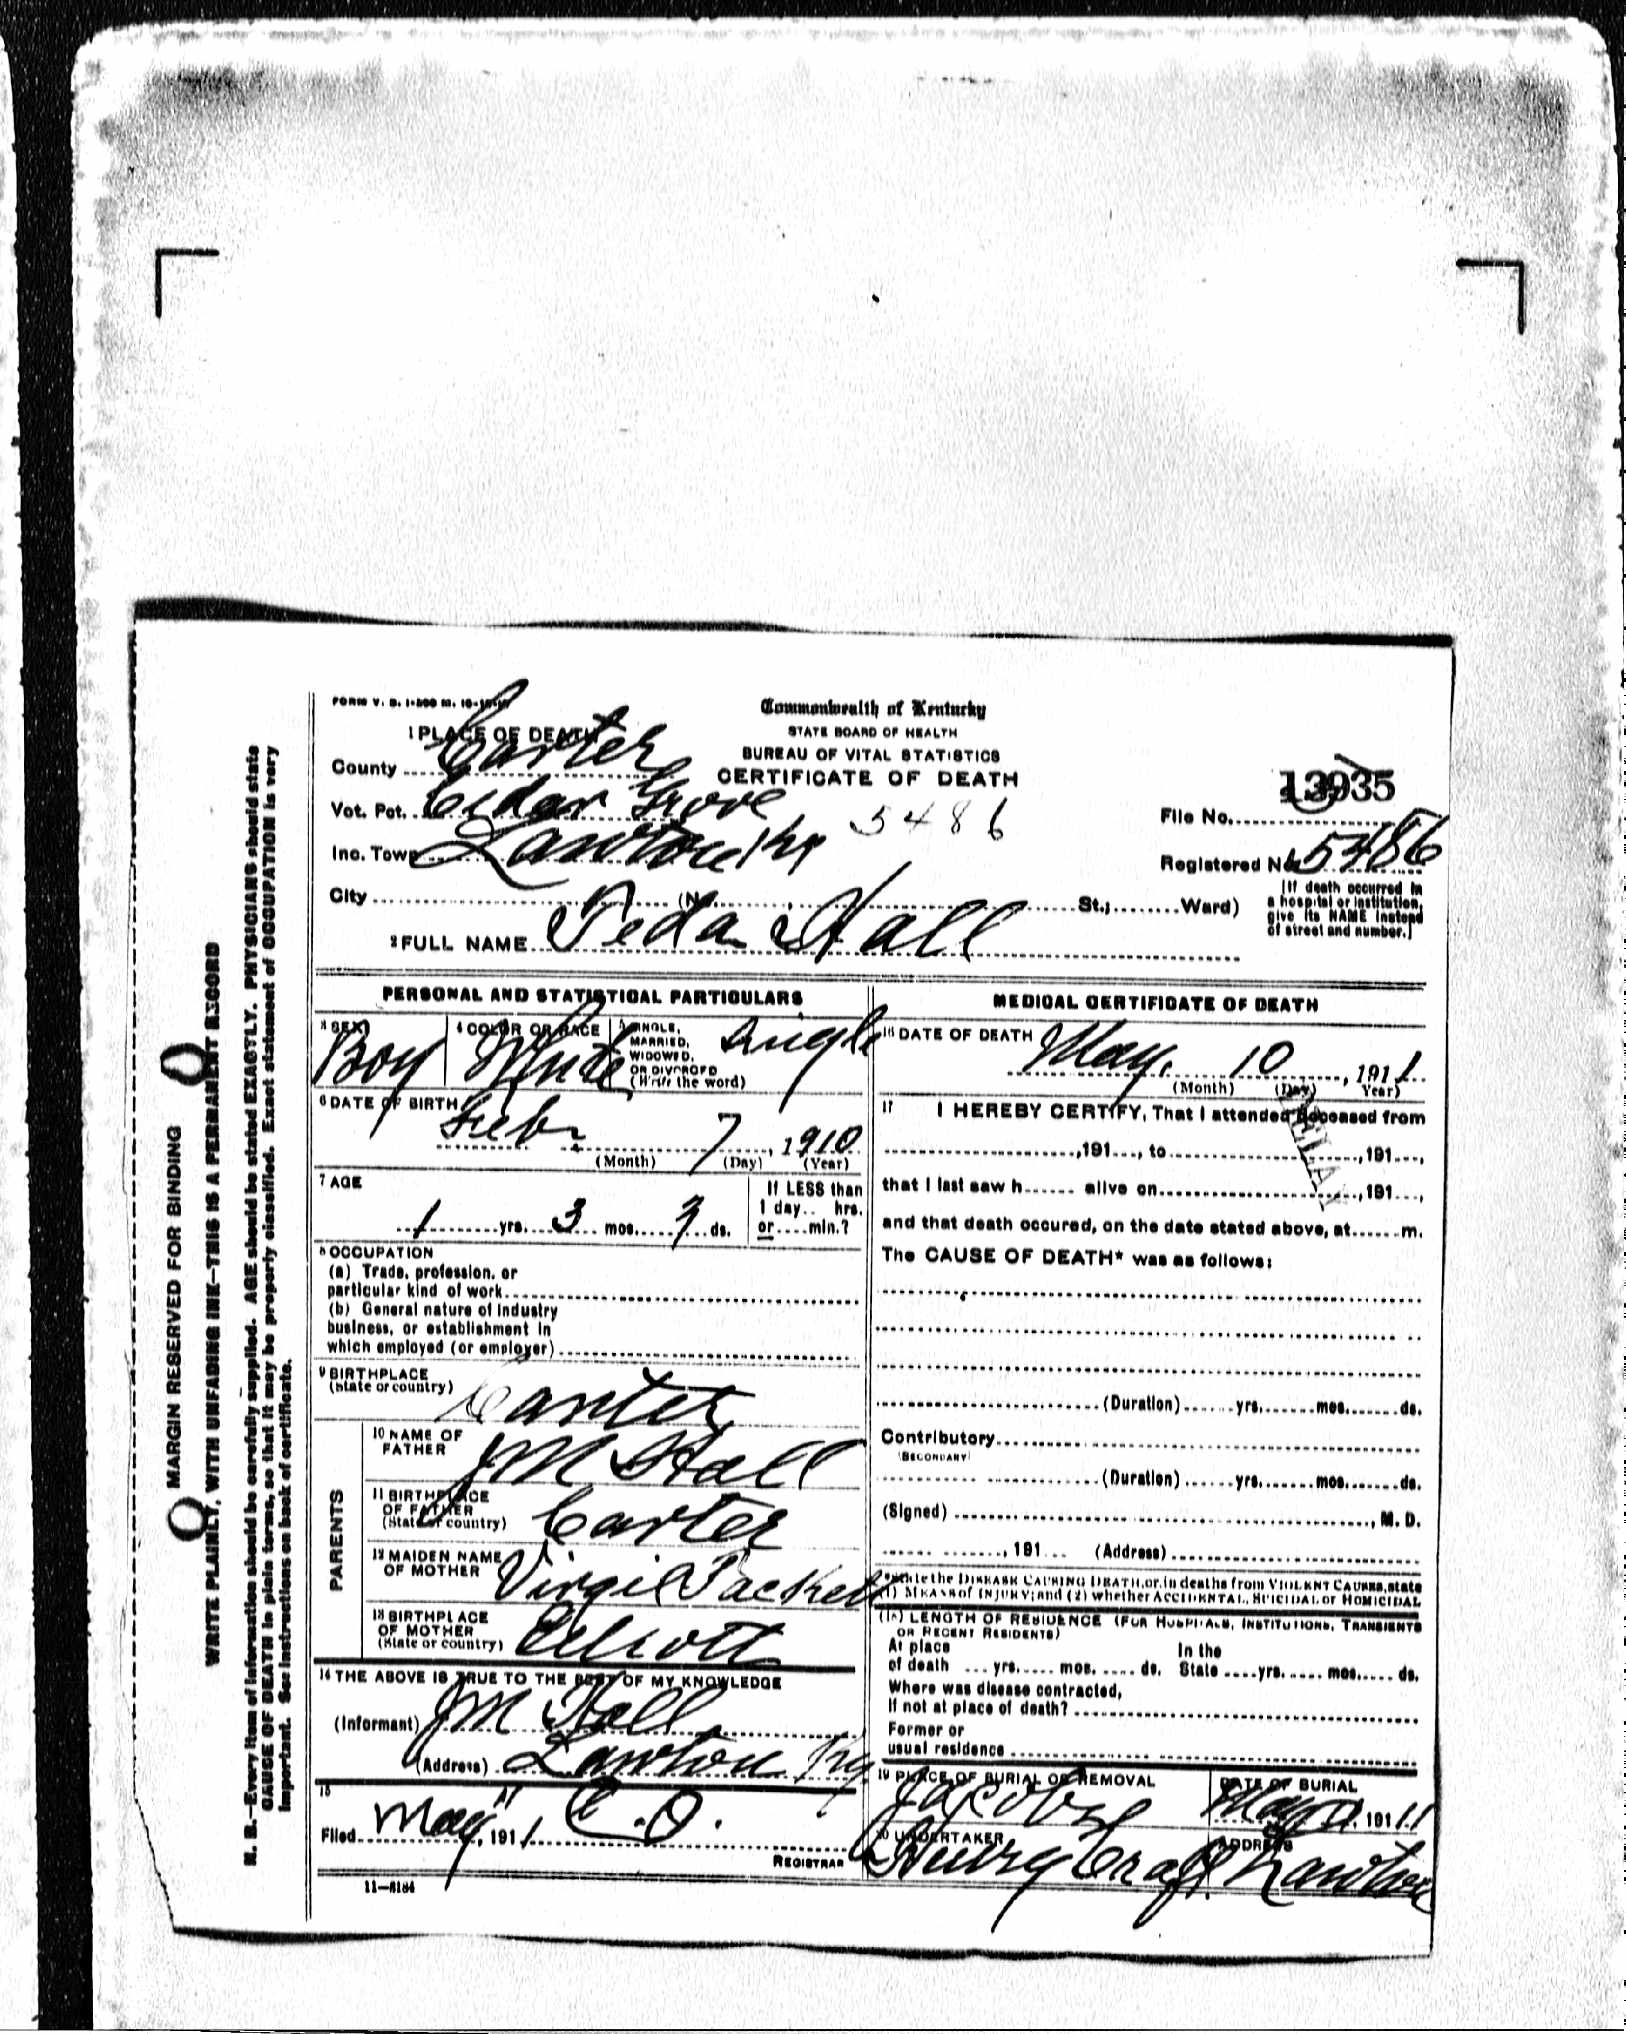 FORM V. S. 1-500 M. 10-
Commonwealth of Kentucky
STATE BOARD OF HEALTH
BUREAU OF VITAL STATISTICS
CERTIFICATE OF DEATH
1 PLACE OF DEATH
County Carter
Vot. Pct. Cedar Grove
Inc. Town Lawton Ky
City (No. St.; Ward)
5486
13935
File No.
Registered No. 5486
[If death occurred in a hospital or institution, give its NAME instead of street and number.]
2 FULL NAME Veda Hall
PERSONAL AND STATISTICAL PARTICULARS
3 SEX Boy
4 COLOR OR RACE White
5 SINGLE, MARRIED, WIDOWED, OR DIVORCED (Write the word) Single
6 DATE OF BIRTH Feb. 7, 1910
(Month) (Day) (Year)
7 AGE
1 yrs. 3 mos. 3 ds.
If LESS than 1 day.. hrs. or....min.?
8 OCCUPATION
(a) Trade, profession, or
particular kind of work
(b) General nature of industry
business, or establishment in
which employed (or employer)
9 BIRTHPLACE
(State or country) Carter
PARENTS
10 NAME OF FATHER J M Hall
11 BIRTHPLACE OF FATHER (State or country) Carter
12 MAIDEN NAME OF MOTHER Virgil Packett
13 BIRTHPLACE OF MOTHER (State or country) Elliott
14 THE ABOVE IS TRUE TO THE BEST OF MY KNOWLEDGE
(Informant) J M Hall
(Address) Lawton Ky
15
Filed May 11, 1911 C.O.
REGISTRAR
11—5184
MEDICAL CERTIFICATE OF DEATH
16 DATE OF DEATH May. 10, 1911
(Month) (Day) Year)
17 I HEREBY CERTIFY, That I attended deceased from
, 191..., to , 191...,
that I last saw h...... alive on , 191...,
and that death occured, on the date stated above, at......m.
The CAUSE OF DEATH* was as follows:
(Duration)......yrs.......mos.......ds.
Contributory
(SECONDARY)
(Duration)......yrs.......mos.......ds.
(Signed) , M. D.
, 191... (Address)
*State the DISEASE CAUSING DEATH, or, in deaths from VIOLENT CAUSES, state
(1) MEANS of INJURY; and (2) whether ACCIDENTAL, SUICIDAL or HOMICIDAL
(18) LENGTH OF RESIDENCE (FOR HOSPITALS, INSTITUTIONS, TRANSIENTS
OR RECENT RESIDENTS)
At place of death ... yrs..... mos. .... ds. In the State ....yrs...... mos..... ds.
Where was disease contracted,
if not at place of death?
Former or
usual residence
19 PLACE OF BURIAL OR REMOVAL Jacobs
DATE OF BURIAL May 11, 1911
20 UNDERTAKER
ADDRESS Lawton
MARGIN RESERVED FOR BINDING
WRITE PLAINLY, WITH UNFADING INK—THIS IS A PERMANENT RECORD
N. B.—Every item of information should be carefully supplied. AGE should be stated EXACTLY. PHYSICIANS should state
CAUSE OF DEATH in plain terms, so that it may be properly classified. Exact statement of OCCUPATION is very
important. See instructions on back of certificate.